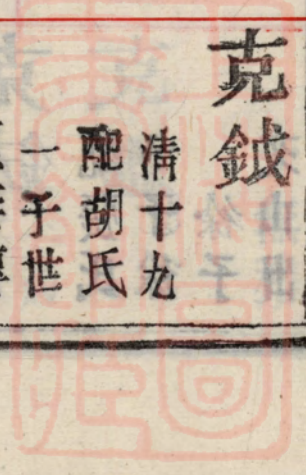 克鉞
清十九
配胡氏
一子世